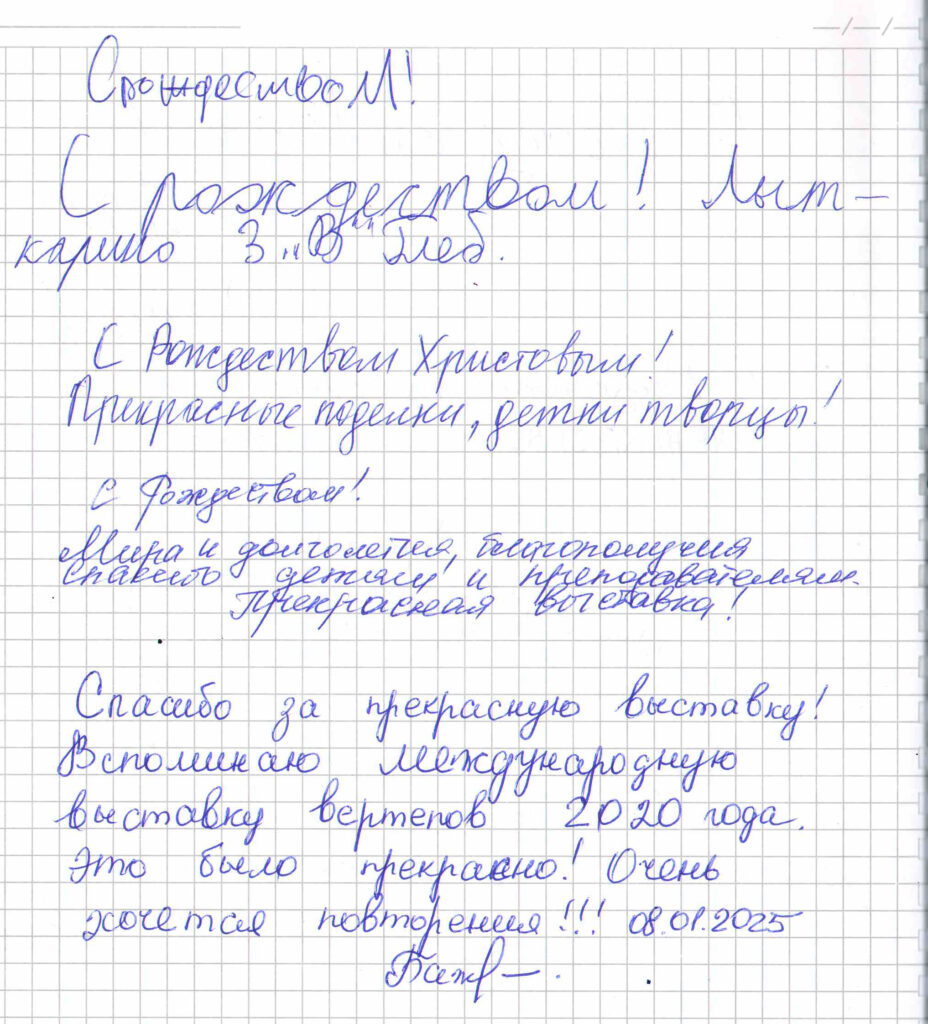 С рождеством!
С рождеством! Лыт-
карино 3 „В" Глеб.
С Рождеством Христовым!
Прекрасные поделки, детки творцы!
С Рождеством!
Мира и долголетия, благополучия
спасибо детям и преподавателям.
Прекрасная выставка!
Спасибо за прекрасную выставку!
Вспоминаю международную
выставку вертепов 2020 года.
Это было прекрасно! Очень
хочется повторения!!! 08.01.2025